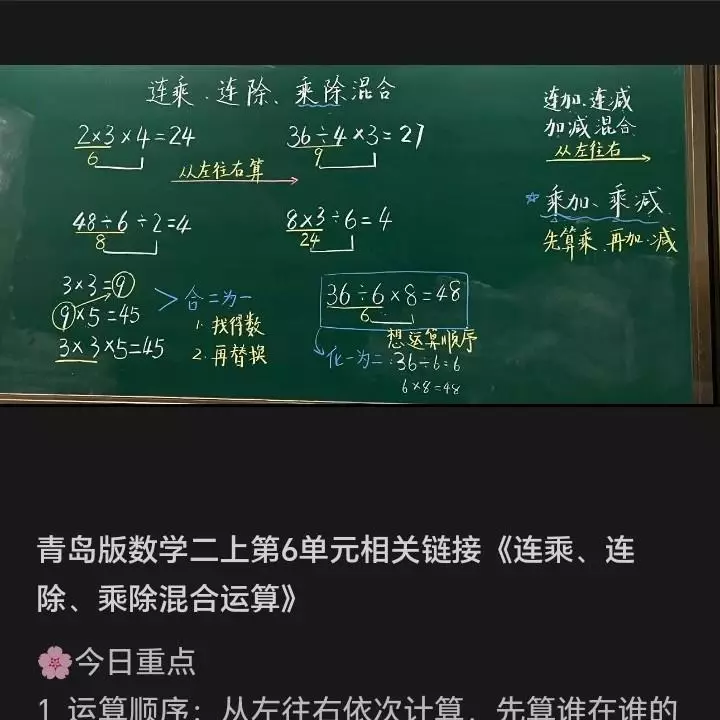 连乘、连除、乘除混合
2×3×4=24
6
36÷4×3=27
9
从左往右算
48÷6÷2=4
8
8×3÷6=4
24
3×3=9
9×5=45
3×3×5=45
合二为一
1. 找得数
2. 再替换
36÷6×8=48
6
想运算顺序
化一为二:36÷6=6
6×8=48
连加、连减
加减混合
从左往右
☆乘加、乘减
先算乘、再加、减
青岛版数学二上第6单元相关链接《连乘、连
除、乘除混合运算》
🌸今日重点
1. 运算顺序：从左往右依次计算，先算谁在谁的